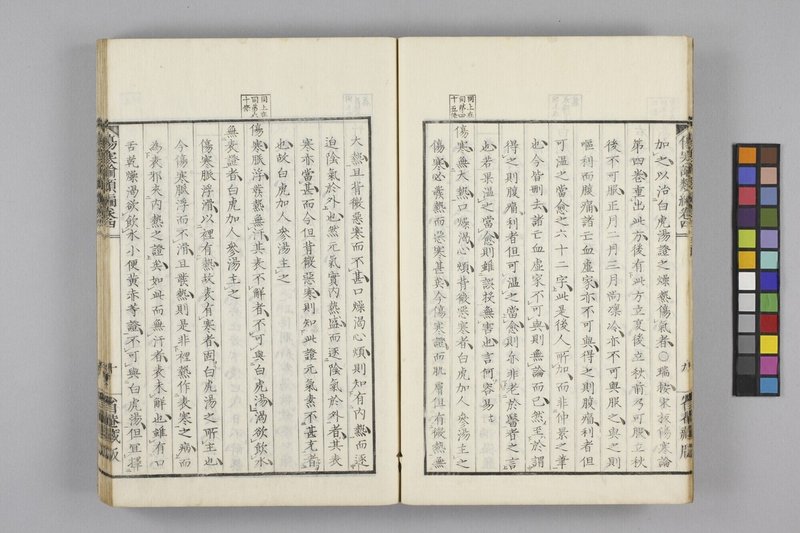 加之以治白虎湯證之燥熱傷氣者○瑞按宋板傷寒論
第四卷重出此方後有此方立夏後立秋前乃可服立秋
後不可服正月二月三月尚凜冷亦不可與服之與之則
嘔利而腹痛諸亡血虛家亦不可與得之則腹痛利者但
可溫之當愈之六十二字此是後人所加而非仲景之筆
也今皆刪去諸亡血虛家不可與則無論而已然至於謂
得之則腹痛利者但可溫之當愈則亦非老於醫者之言
也若果溫之當愈則雖誤投無害也言何容易
同上在
傷寒無大熱口燥渴心煩背微惡寒者白虎加人參湯主之
傷寒必發熱而惡寒甚矣今傷寒纔而肌膚但有微熱無
大熱且背微惡寒而不甚口燥渴心煩則知有内熱而逐
迫陰氣於外也然元氣實内熱盛而逐陰氣於外者其表
寒亦當甚而今但背微惡寒則知此證元氣素不甚充者
也故白虎加人參湯主之
同上在
傷寒脈浮發熱無汗其表不解者不可與白虎湯渴欲飲水
無表證者白虎加人參湯主之
傷寒脈浮滑以裡有熱故表有寒者因白虎湯之所主也
今傷寒脈浮而不滑且發熱則是非裡熱作表寒之病而
為表邪夾内熱之證矣如此而無汗者表未解也雖有口
舌乾燥渴欲飲水小便黄赤等證不可與白虎湯但宜擇
傷寒論類編卷四
十
省菴藏版